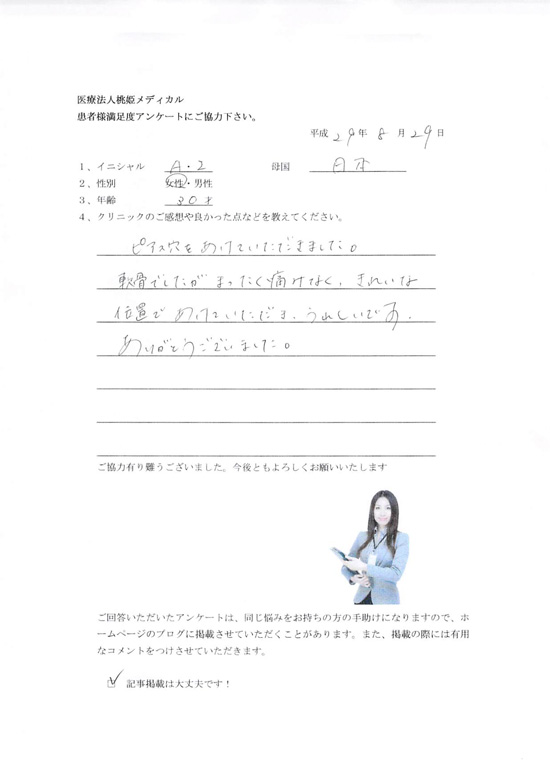 医療法人桃姫メディカル
患者様満足度アンケートにご協力下さい。
平成 29 年 8 月 29 日
1、イニシャル A・Z 母国 日本
2、性別 女性・男性
3、年齢 30才
4、クリニックのご感想や良かった点などを教えてください。
ピアス穴をあけていただきました。
軟骨でしたがまったく痛けなく、きれいな
位置であけていただき、うれしいです。
ありがとうございました。
ご協力有り難うございました。今後ともよろしくお願いいたします
ご回答いただいたアンケートは、同じ悩みをお持ちの方の手助けになりますので、ホ
ームページのブログに掲載させていただくことがあります。また、掲載の際には有用
なコメントをつけさせていただきます。
記事掲載は大丈夫です！